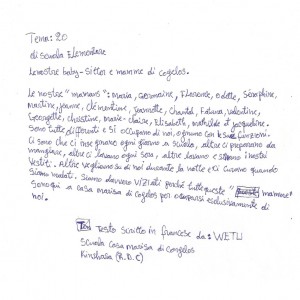 Tema: 20
di scuola Elementare
Le nostre baby-sitter e mamme di Cogelos.
Le nostre "mamans": Maria, Germaine, Florence, Odette, Séraphine,
Martine, Jeanne, Clémentine, Jeannette, Chantal, Fatuma, Valentine,
Georgette, Christine, Marie-Claire, Elisabeth, Mathilde et Jacqueline.
Sono tutte differenti e si occupano di noi, ognuno con le sue funzioni.
Ci sono che ci insegnano ogni giorno a scuola, altre ci preparano da
mangiare, altre ci lavano ogni sera, altre lavano e stirano i nostri
Vestiti. Altre vegliano su di noi durante la notte e ci curano quando
Siamo malati. Siamo davvero VIZIATI perché tutte queste " mamans"
Sono qui a casa marisa di cogelos per occuparsi esclusivamente di
noi.
Testo scritto in francese da: WETU
Scuola casa marisa di Congelos
Kinshasa (R.D.C)